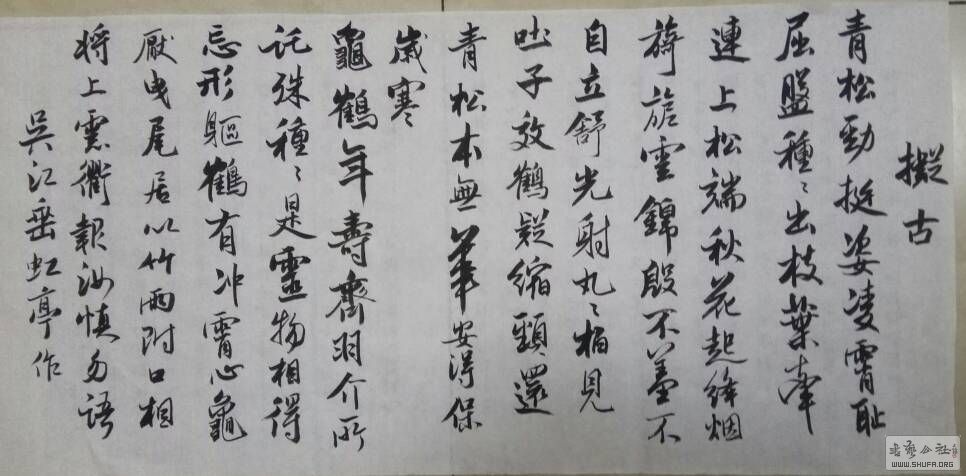 擬古
青松勁挺姿凌霄恥
屈盤種〻出枝葉牽
連上松端秋花起絳烟
旖旎雲錦殷不羞不
自立舒光射丸〻柏見
吐子效鶴疑縮頸還
青松本無華安得保
歲寒
龜鶴年壽齊羽介所
託殊種〻是靈物相得
忘形軀鶴有冲霄心龜
厭曳尾居以竹兩附口相
將上雲衢報汝慎勿語
吳江垂虹亭作
书艺公社
WWW.SHUFA.ORG